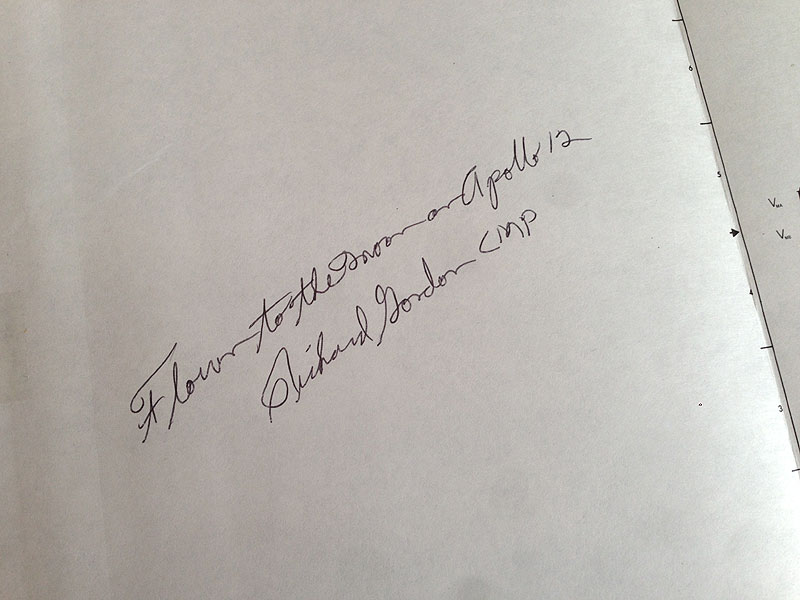 Flown to the moon on Apollo 12
Richard Gordon CMP
6
5
4
3